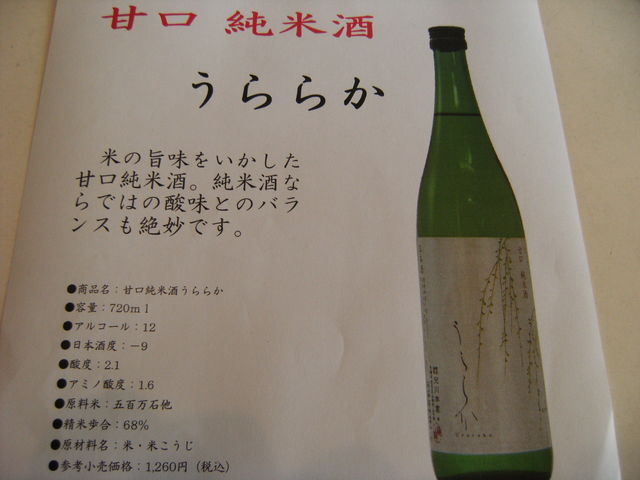 甘口 純米酒
うららか
米の旨味をいかした
甘口純米酒。純米酒な
らではの酸味とのバラ
ンスも絶妙です。
●商品名：甘口純米酒うららか
●容量：720ｍｌ
●アルコール：12
●日本酒度：－9
●酸度：2.1
●アミノ酸度：1.6
●原料米：五百万石他
●精米歩合：68%
●原材料名：米・米こうじ
●参考小売価格：1,260円（税込）
甘口 純米酒
うららか